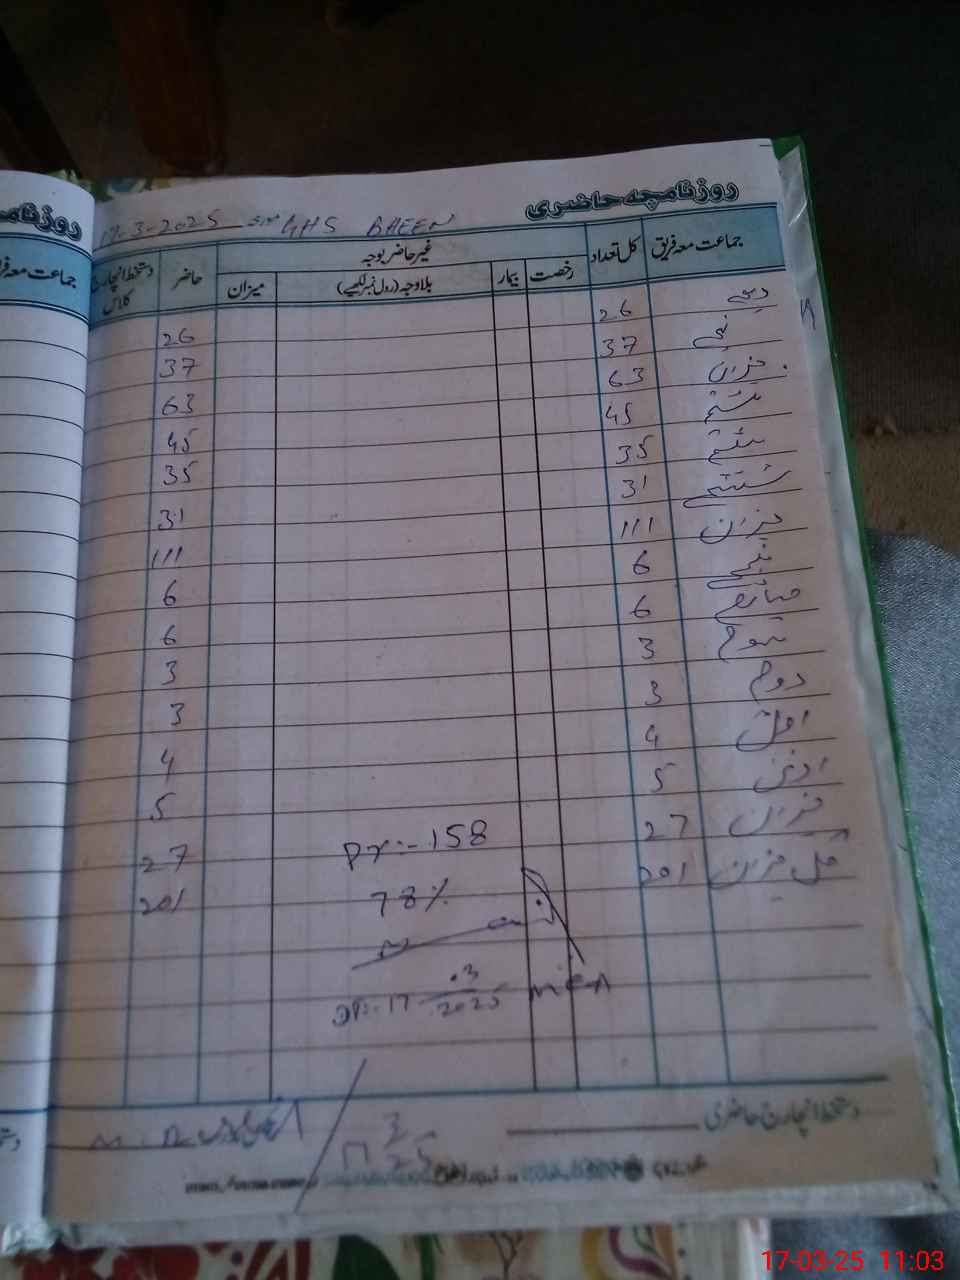 روزنامچہ حاضری
17-3-2025 GHS BHEEN
جماعت معہ فریق کل تعداد غیر حاضر بوجہ حاضر دستخط انچارج کلاس
رخصت بیمار بلاوجہ (رول نمبر لکھیے) میزان
دہم 26 26
نہم 37 37
میزان 63 63
ہشتم 45 45
ہفتم 35 35
ششم 31 31
میزان 111 111
پنجم 6 6
چہارم 6 6
سوم 3 3
دوم 3 3
اول 4 4
ادنیٰ 5 5
میزان 27 27
کل میزان 201 201
Pr:- 158
78%
DT:- 17-03-2025 MEA
دستخط انچارج حاضری
روزنامچہ
جماعت معہ فر
17-03-25 11:03